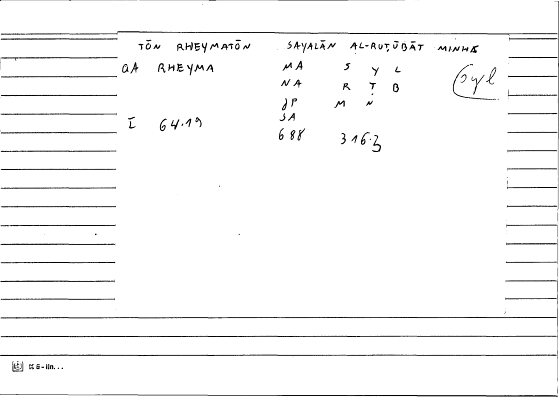 TŌN RHEYMATŌN SAYALĀN AL-RUṬŪBĀT MINHĀ
QA RHEYMA MA S Y L
syl
NA R Ṭ B
JP M N
SA
I 64.19 688 316.3